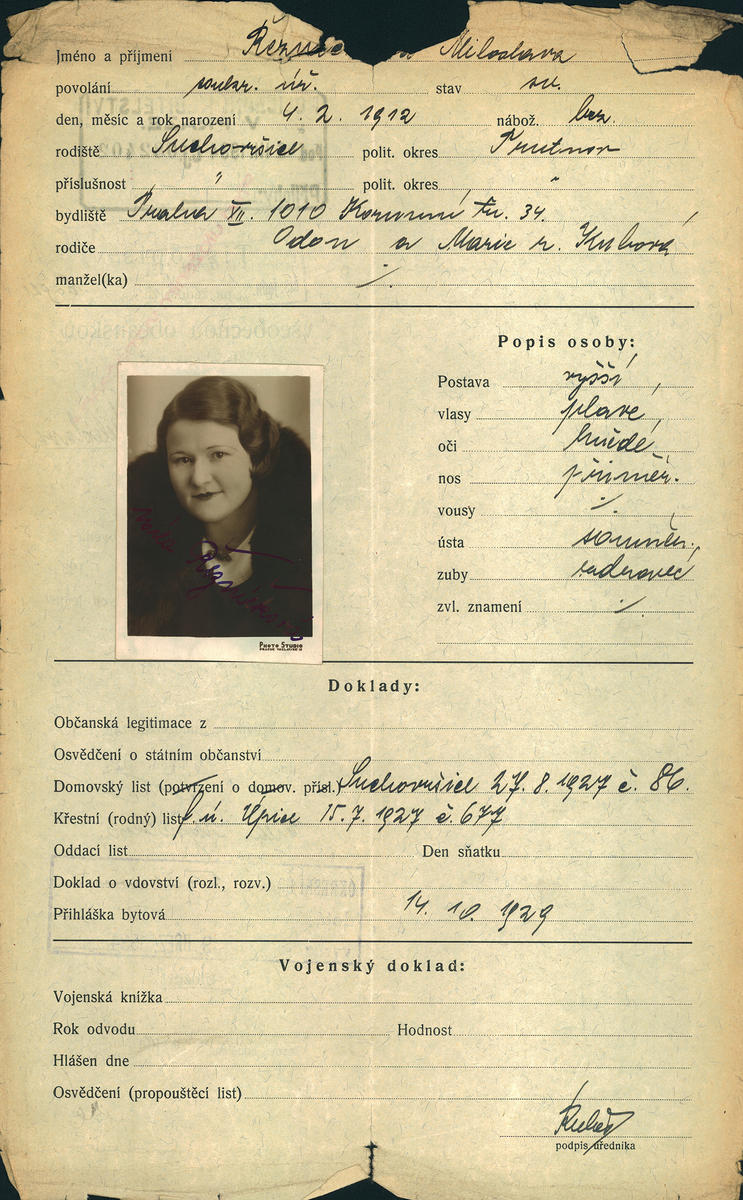 Jméno a příjmení Miloslava
povolání soukr. úř. stav sv.
den, měsíc a rok narození 4. 2. 1912 nábož. bez.
rodiště Suchovršice polit. okres Trutnov
příslušnost " polit. okres "
bydliště Praha XII. 1010 Korunní tř. 34.
rodiče Odon a Marie r. Kubová
manžel(ka) ·/.
Popis osoby:
Postava vyšší
vlasy plavé
oči hnědé
nos přiměř.
vousy ·/.
ústa souměr.
zuby
zvl. znamení ·/.
Řezníčková
PHOTO STUDIO
Doklady:
Občanská legitimace z
Osvědčení o státním občanství
Domovský list (potvrzení o domov. přísl.) Suchovršice 27. 8. 1927 č. 86.
Křestní (rodný) list f. ú. Úpice 15. 7. 1927 č. 677
Oddací list Den sňatku
Doklad o vdovství (rozl., rozv.)
Přihláška bytová 14. 10. 1929
Vojenský doklad:
Vojenská knížka
Rok odvodu Hodnost
Hlášen dne
Osvědčení (propouštěcí list)
podpis úředníka